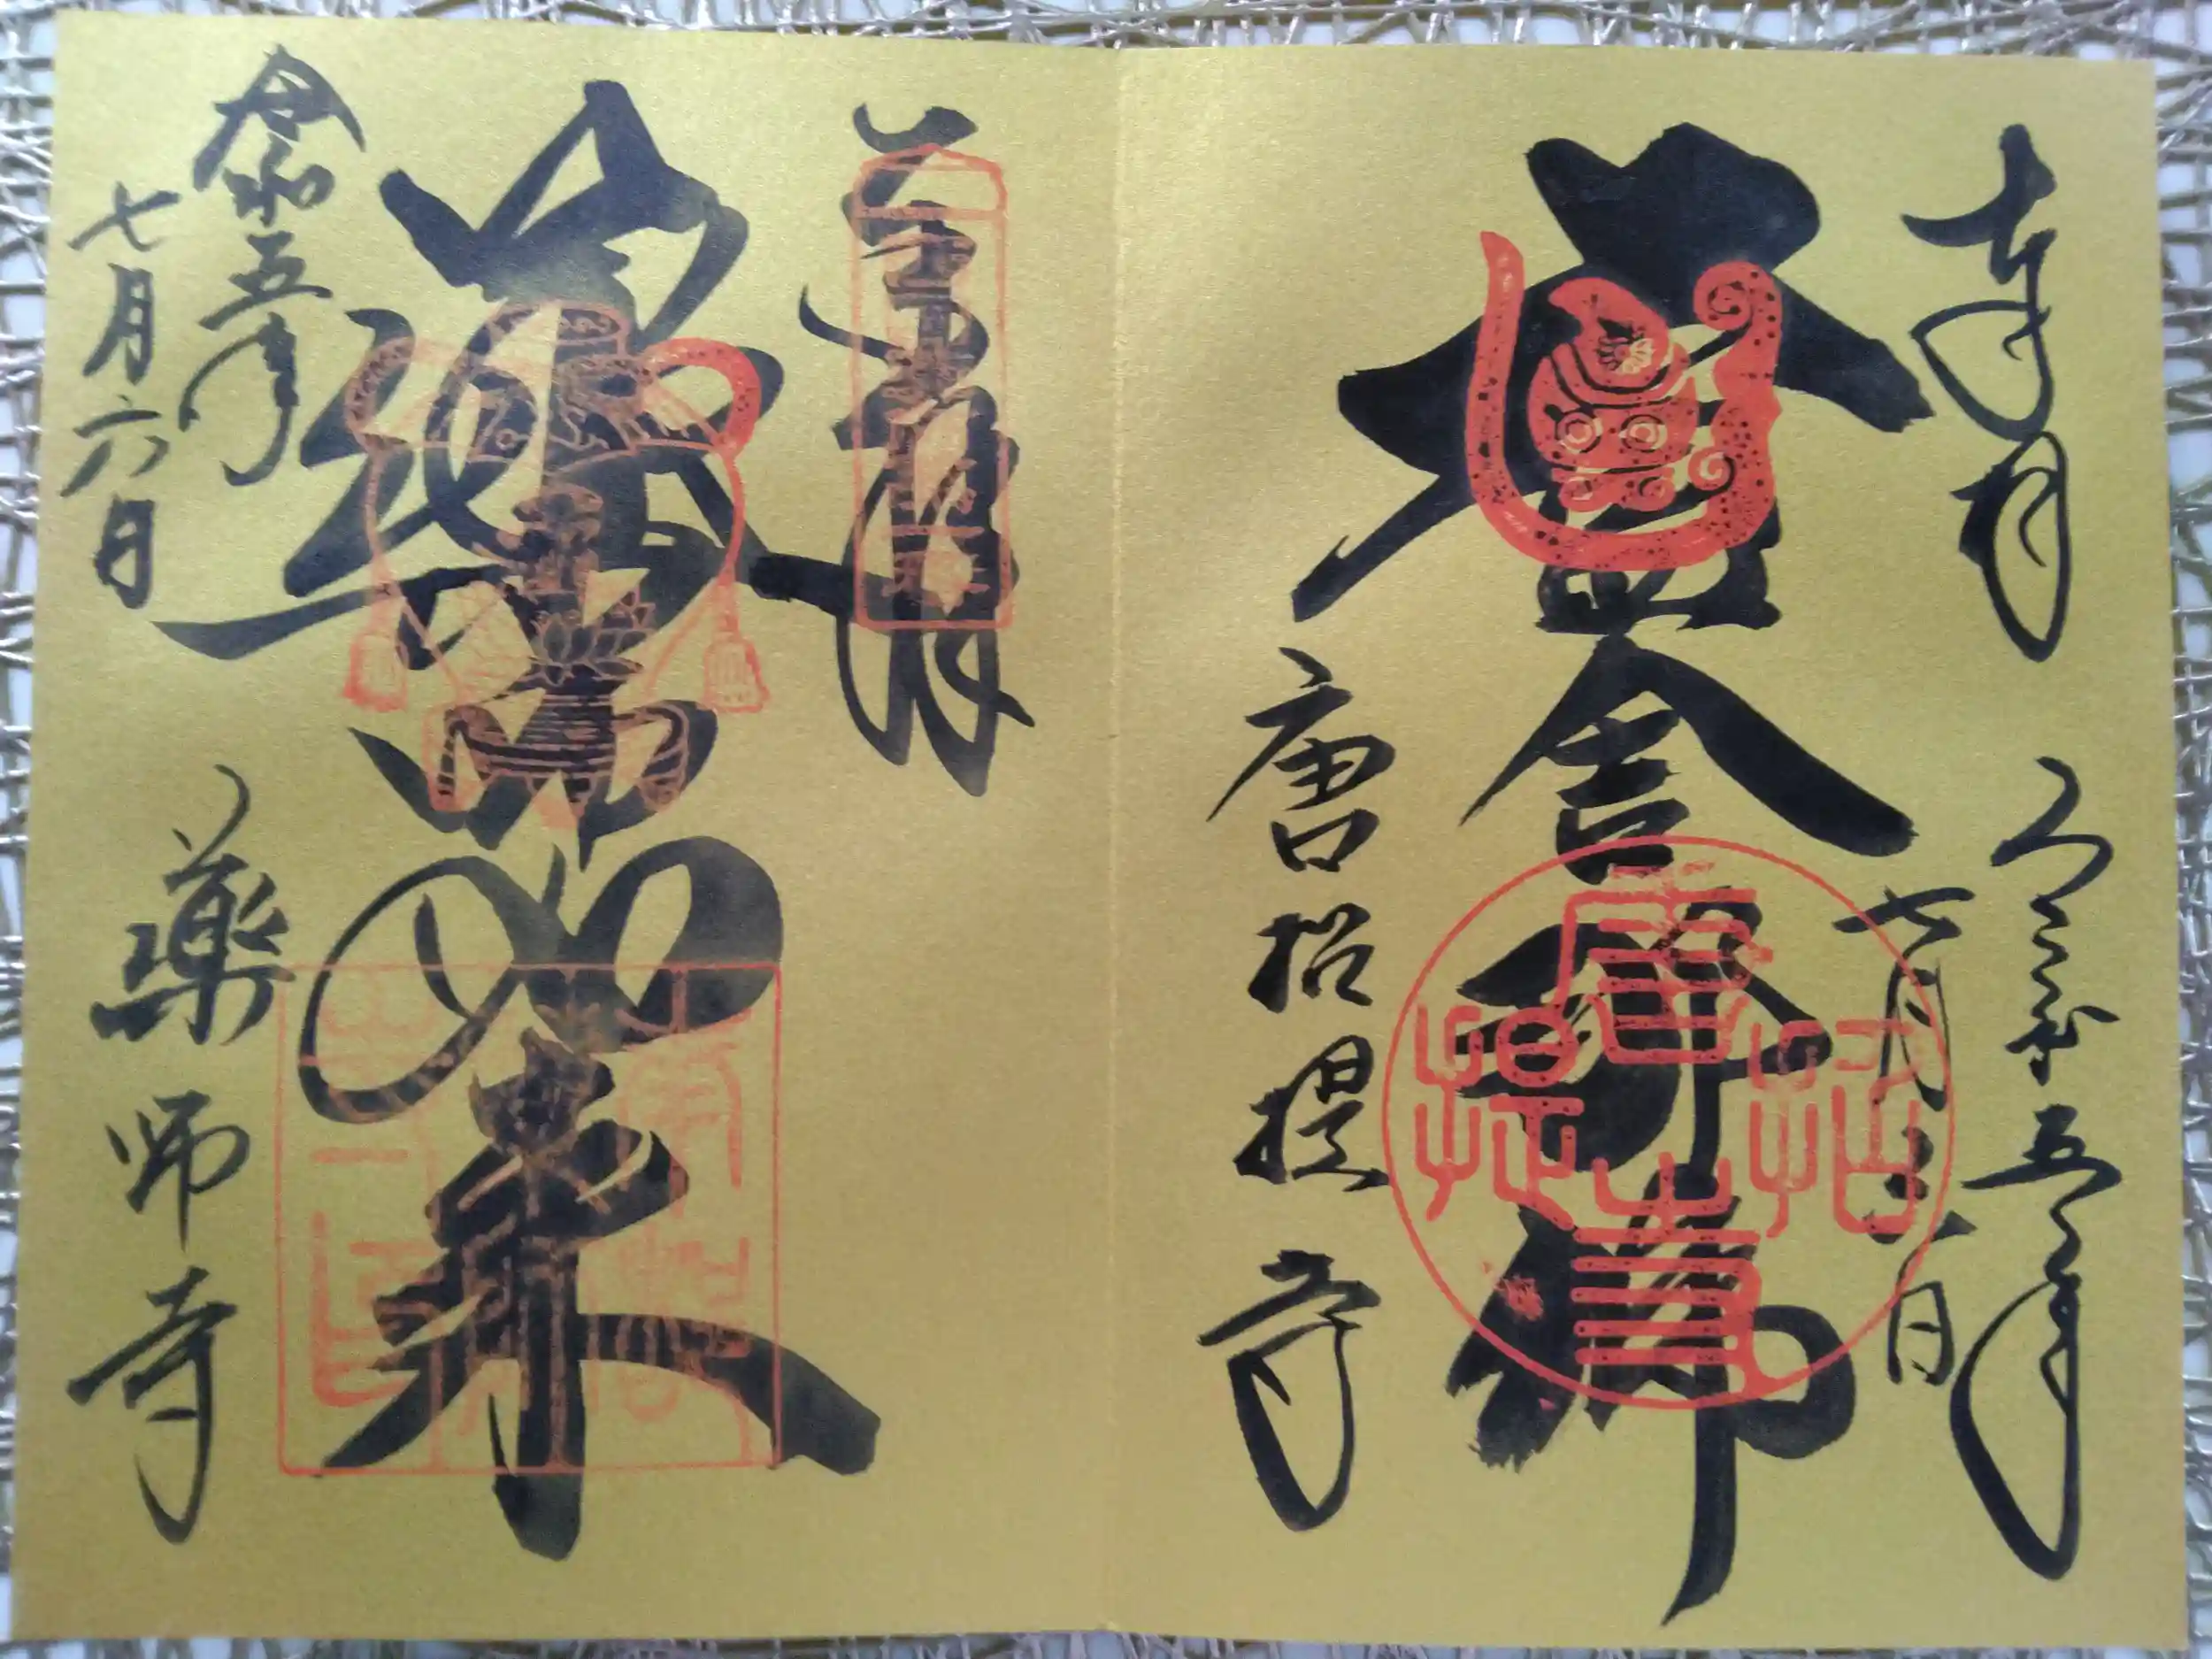 奉拝
令和五年
七月六日
盧舎那佛
唐招提寺
唐招提寺
奉拝
薬師如来
令和五年
七月六日
藥師寺